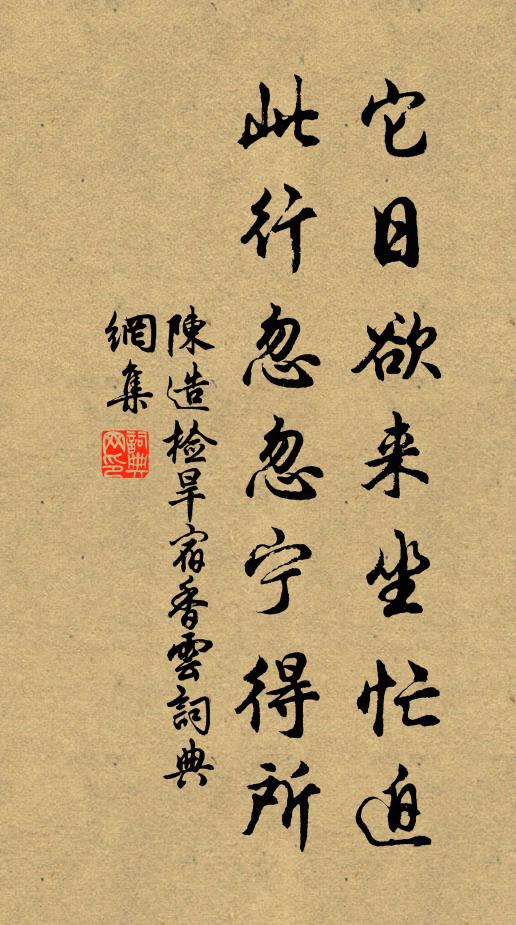 它日欲来坐忙迫
此行忽忽宁得所
陳造检旱宿香雲詞典
網集
詞典
网印